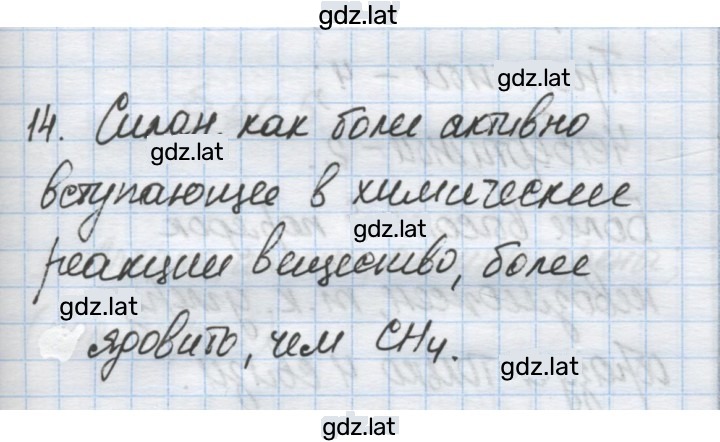 gdz.lat
gdz.lat
14. Силан как более активно
gdz.lat
вступающее в химические
gdz.lat
реакции вещество, более
gdz.lat
ядовит, чем CH4.
gdz.lat
gdz.lat